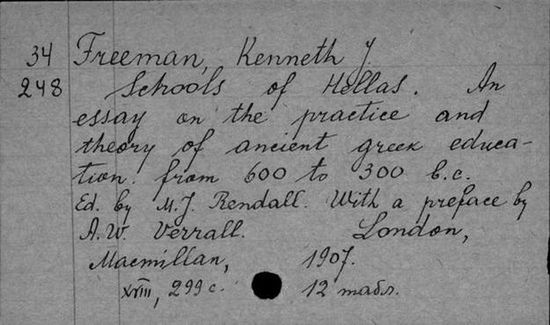 34 Freeman, Kenneth J.
248 Schools of Hellas. An
essay on the practice and
theory of ancient greek educa-
tion. from 600 to 300 b.c.
Ed. by M.J. Rendall. With a preface by
A.W. Verrall. London,
Macmillan, 1907.
XVIII, 299 c. 12 табл.